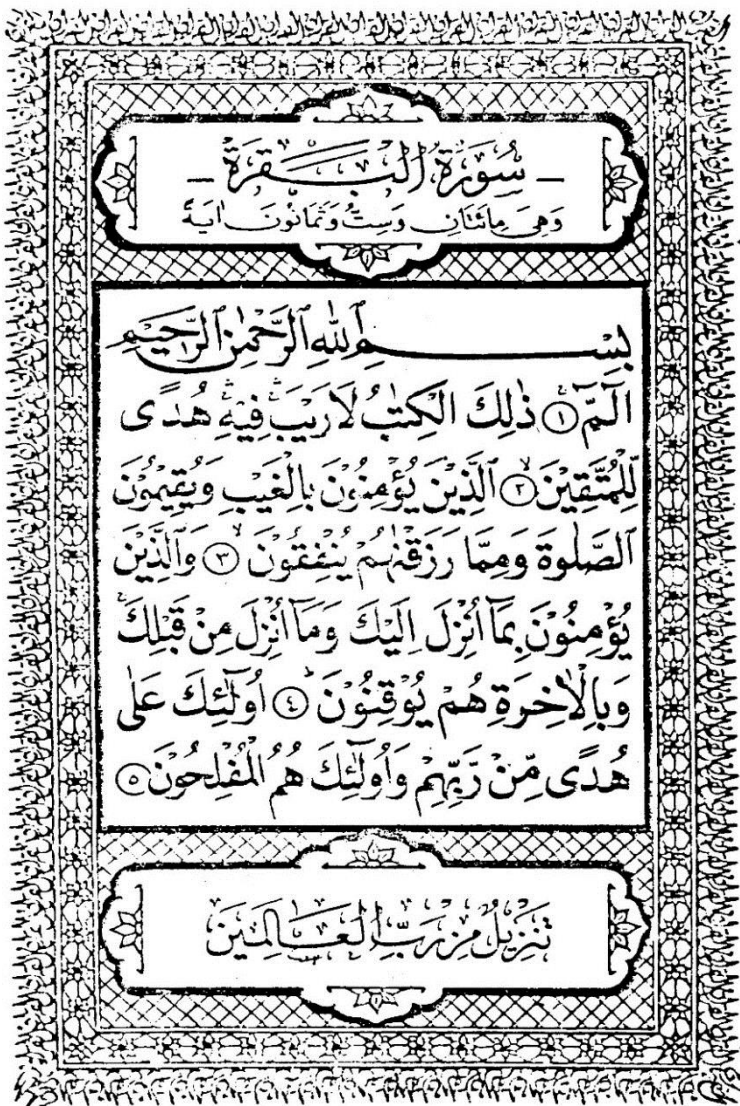 سُورَةُ الْبَقَرَةِ
وَهِيَ مِائَتَانِ وَسِتٌّ وَثَمَانُونَ اٰيَةً
بِسْمِ اللّٰهِ الرَّحْمٰنِ الرَّحِيمِ
الٓمّٓ ۚ ﴿١﴾ ذٰلِكَ الْكِتٰبُ لَا رَيْبَ ۛ فِيْهِ ۛ هُدًى
لِّلْمُتَّقِيْنَ ۙ ﴿٢﴾ الَّذِيْنَ يُؤْمِنُوْنَ بِالْغَيْبِ وَيُقِيْمُوْنَ
الصَّلٰوةَ وَمِمَّا رَزَقْنٰهُمْ يُنْفِقُوْنَ ۙ ﴿٣﴾ وَالَّذِيْنَ
يُؤْمِنُوْنَ بِمَٓا اُنْزِلَ اِلَيْكَ وَمَٓا اُنْزِلَ مِنْ قَبْلِكَ ۚ
وَبِالْاٰخِرَةِ هُمْ يُوْقِنُوْنَ ۜ ﴿٤﴾ اُولٰٓئِكَ عَلٰى
هُدًى مِّنْ رَبِّهِمْ وَاُولٰٓئِكَ هُمُ الْمُفْلِحُوْنَ ﴿٥﴾
تَنْزِيْلٌ مِنْ رَبِّ الْعَالَمِيْنَ